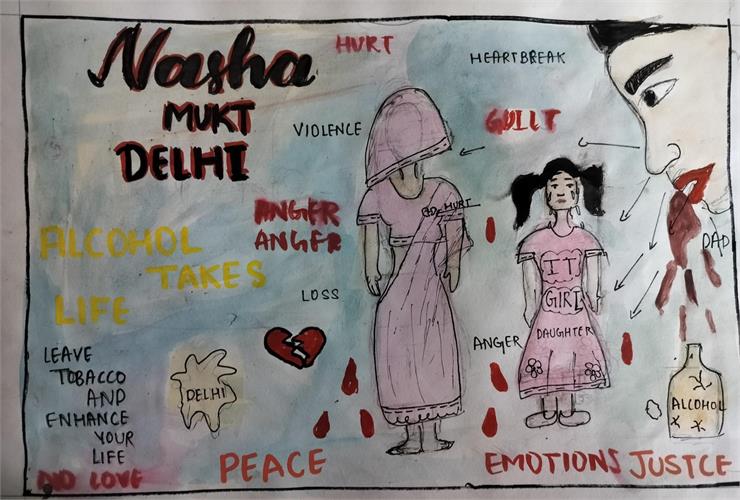 Nasha
MUKT
DELHI
HURT
HEARTBREAK
VIOLENCE
GUILT
ANGER
ANGER
HURT
DAD
ALCOHOL
TAKES
LIFE
LOSS
IT
GIRL
DAUGHTER
ANGER
LEAVE
TOBACCO
AND
ENHANCE
YOUR
LIFE
LOVE
DELHI
ALCOHOL
PEACE
EMOTIONS
JUSTCE